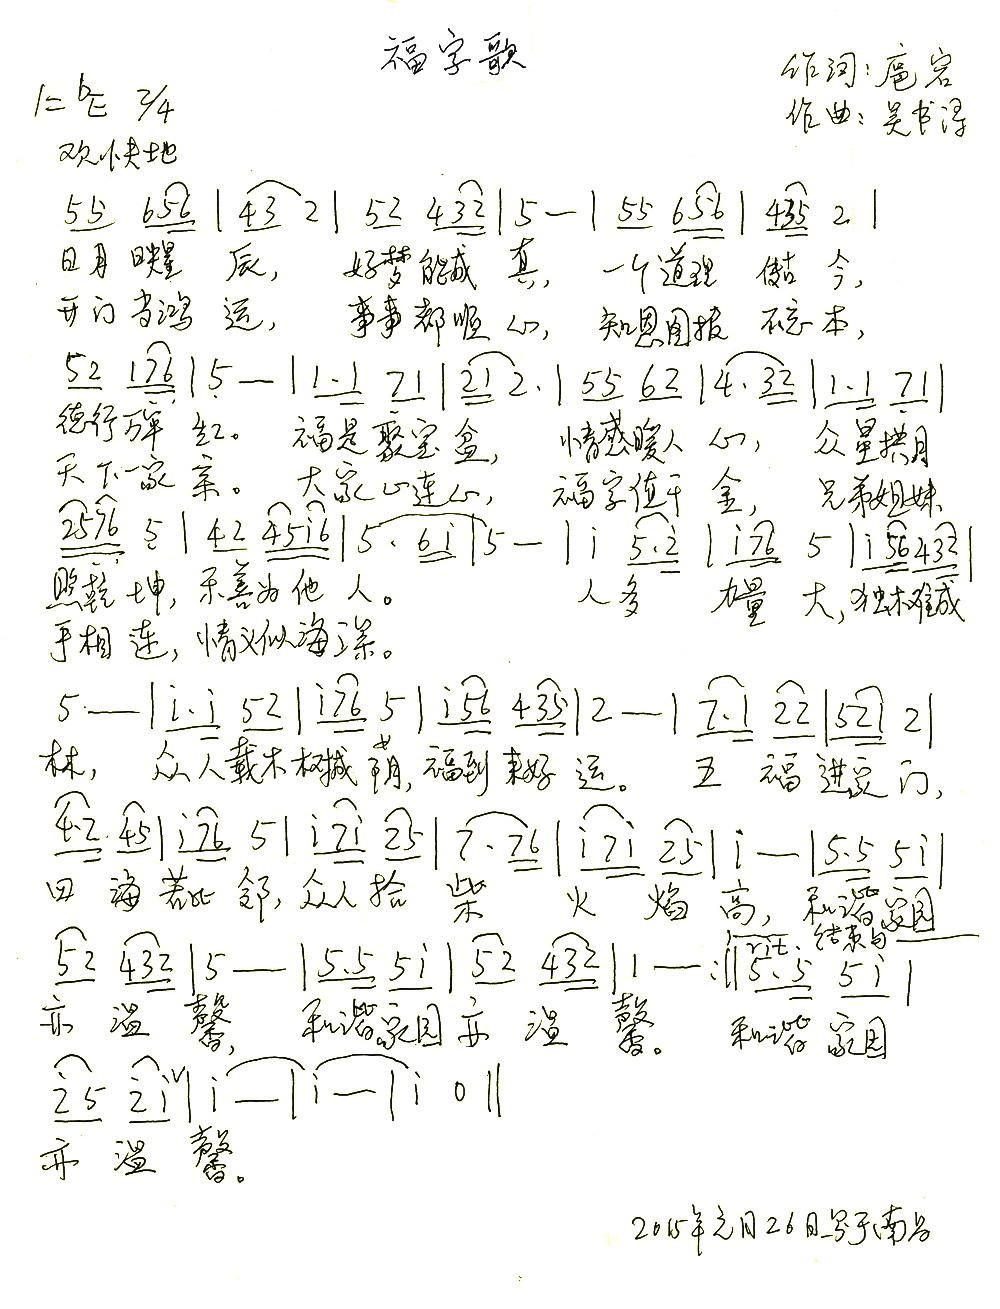 福字歌
作词:扈容
1=ᵇE 2/4
作曲:吴书得
欢快地
55 656 | 43 2 | 52 432 | 5 — | 55 656 | 435 2 |
日月映星 辰, 好梦能成 真, 一个道理 传古 今,
开门有鸿 运, 事事都顺 心, 知恩图报 不忘 本,
52 176 | 5 — | 1·1 71 | 21 2· | 55 62 | 4·32 | 1·1 71 |
德行万年 红。 福是聚宝 盆, 情感暖人 心, 众星拱月
天下一家 亲。 大家心连 心, 福字值千 金, 兄弟姐妹
2576 5 | 42 45i6 | 5· 6i | 5 — | i 5·2 | i76 5 | i56 432 |
照乾 坤, 乐善为他 人。 人多 力量 大, 独木难成
手相 连, 情义似海 深。
5 — | i·i 52 | i76 5 | i56 435 | 2 — | 7·1 22 | 521 2 |
林, 众人栽木树成 荫, 福到来好 运。 五 福 进家 门,
4·2 45 | i76 5 | i7i 25 | 7·76 | i7i 25 | i — | 5·5 5i |
四 海 若比 邻, 众人拾 柴 火 焰 高, 和谐家园
rit. 结束句
52 432 | 5 — | 5·5 5i | 52 432 | 1 — :‖ 5·5 5i |
亦 温 馨, 和谐家园 亦 温 馨。 和谐 家园
25 2i | i — | i — | i 0 ‖
亦 温 馨。
2015年元月26日写于南昌